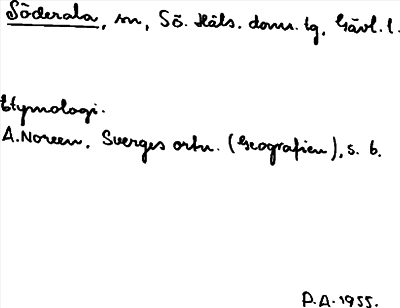 Söderala, sn, Sö. Häls. doms. tg, Gävl. l.
Etymologi.
A. Noreen, Sverges ortn. (Geografien), s. 6.
P.A. 1955.